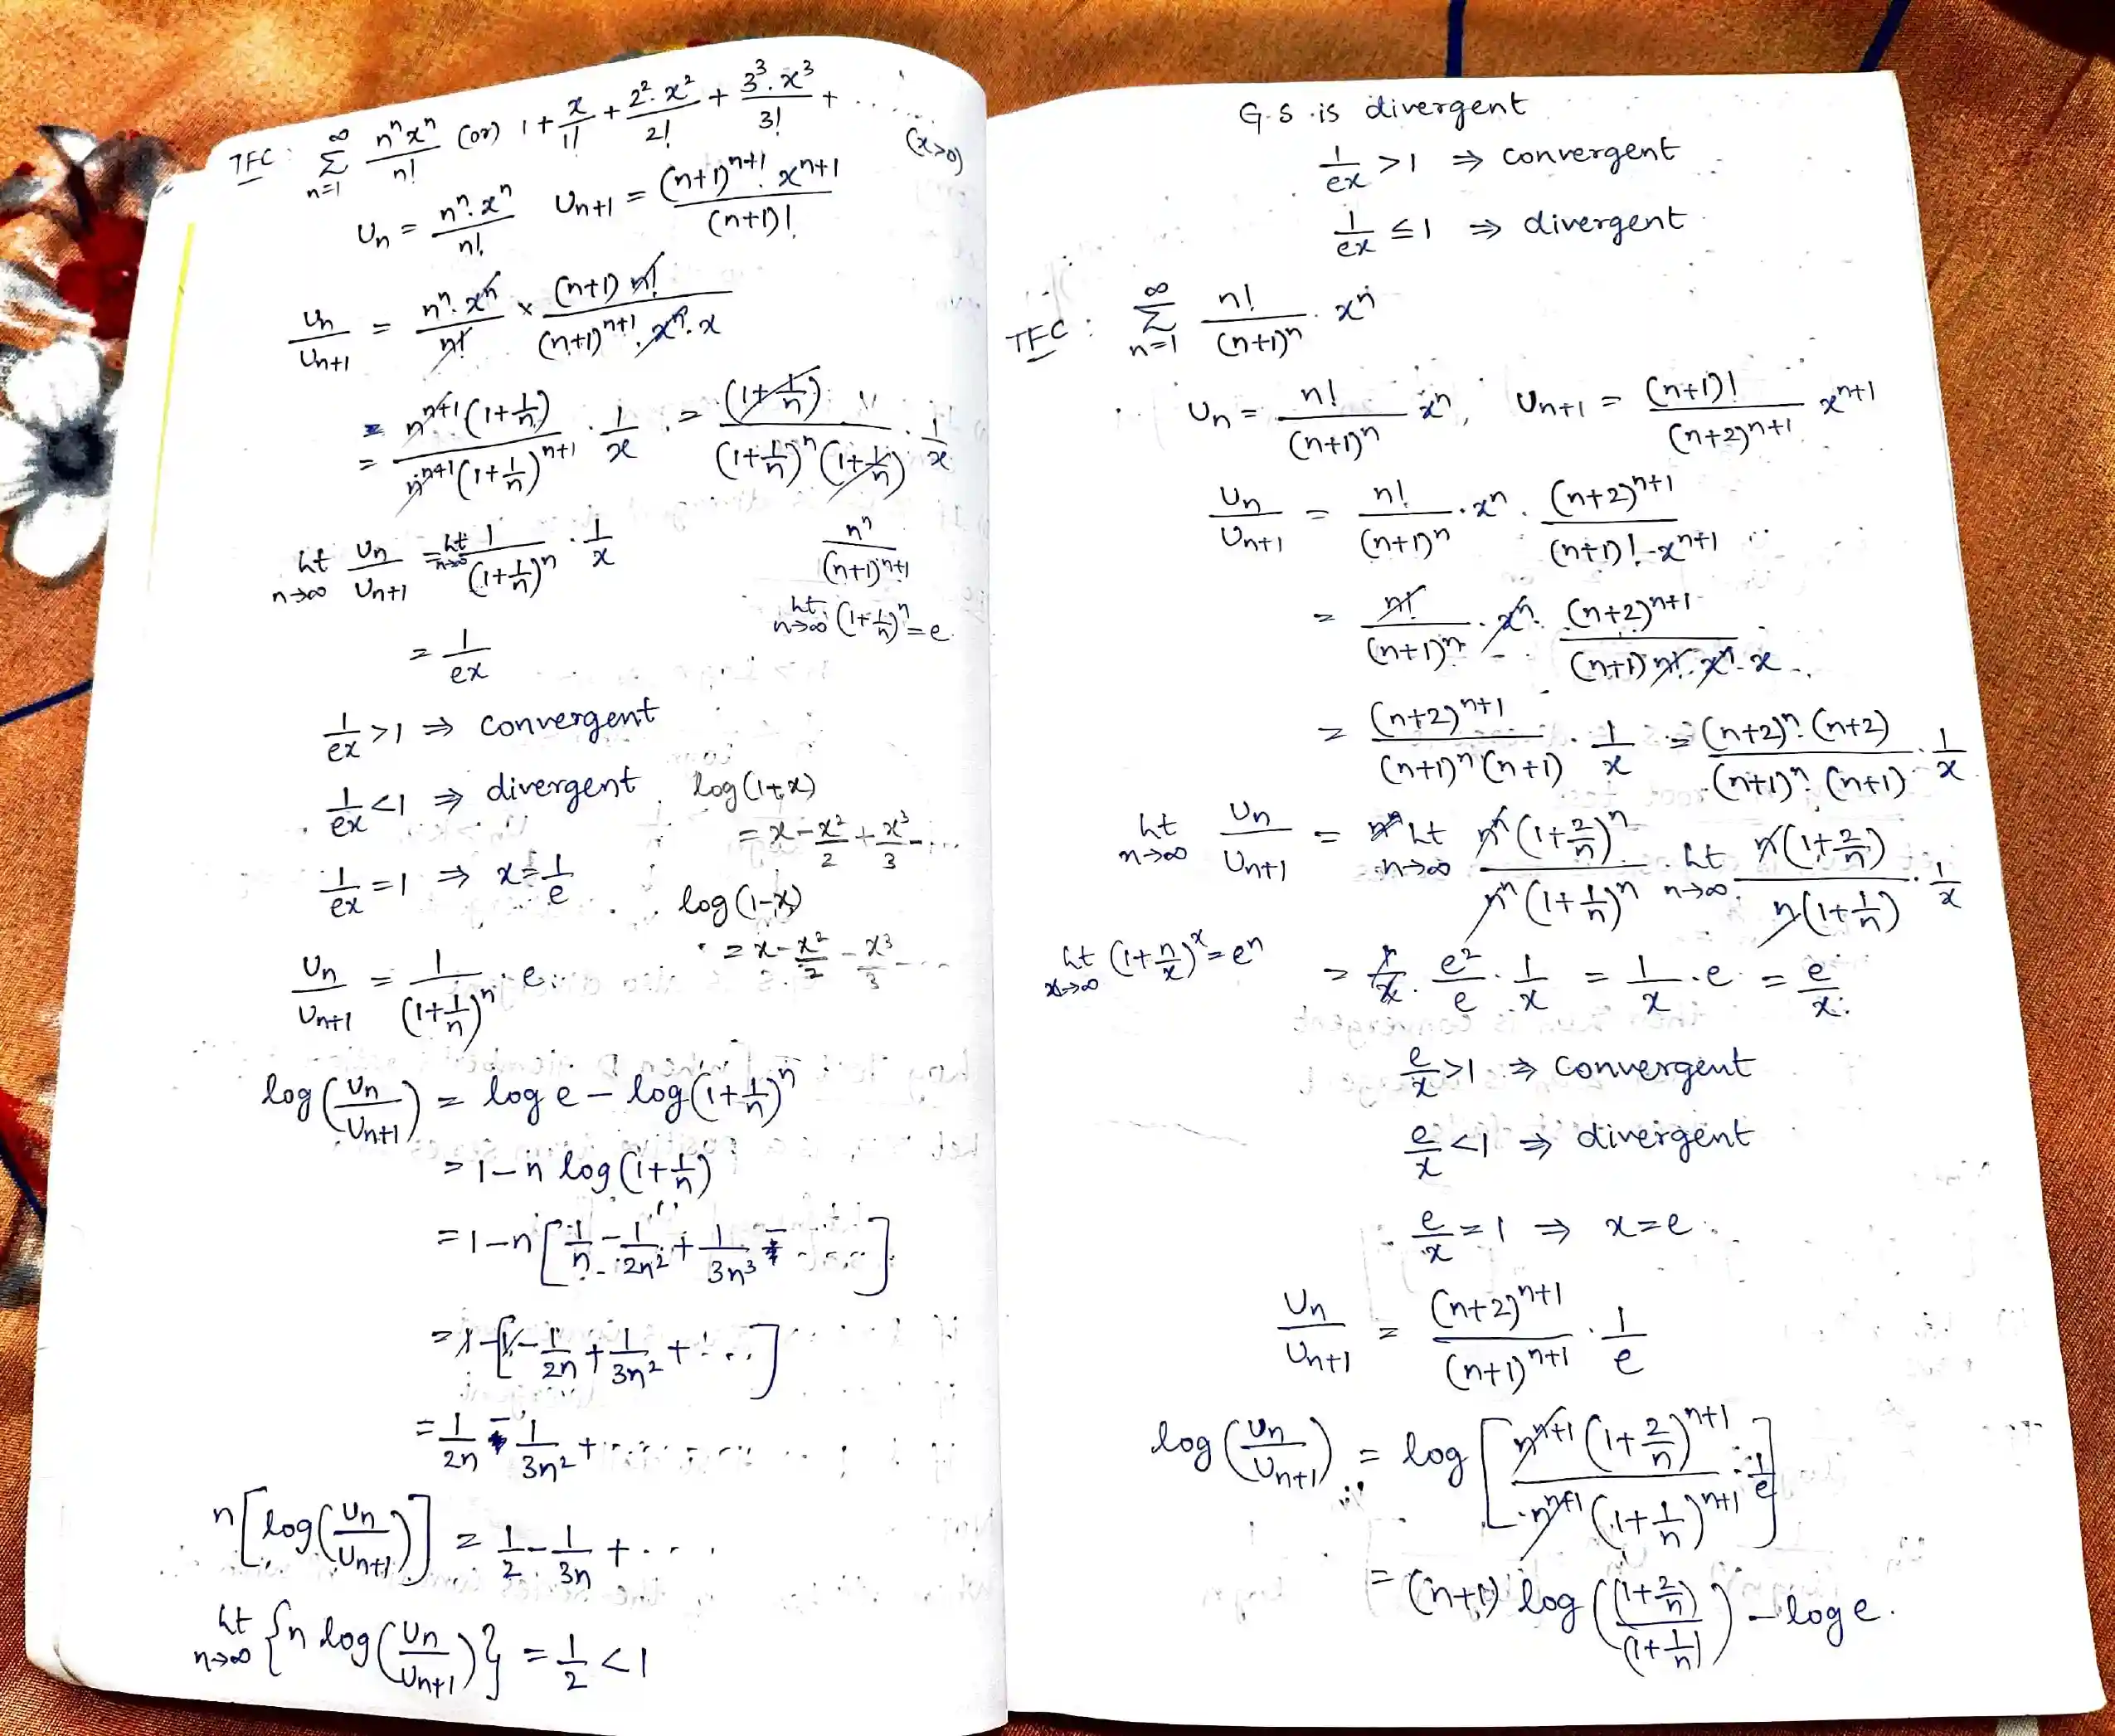 TFC : ∞ Σ n=1 nⁿxⁿ/n! (or) 1 + x/1! + 2².x²/2! + 3³.x³/3! + ..... (x>0)
Un = nⁿ.xⁿ/n! Un+1 = (n+1)ⁿ⁺¹.xⁿ⁺¹/(n+1)!
Un/Un+1 = nⁿ.xⁿ/n! × (n+1) n!/(n+1)ⁿ⁺¹.xⁿ.x
= nⁿ⁺¹(1+1/n)/nⁿ⁺¹(1+1/n)ⁿ⁺¹ . 1/x = (1+1/n)/(1+1/n)ⁿ(1+1/n) . 1/x
Lt n→∞ Un/Un+1 = Lt n→∞ 1/(1+1/n)ⁿ . 1/x
nⁿ/(n+1)ⁿ⁺¹
Lt n→∞ (1+1/n)ⁿ = e
= 1/ex
1/ex > 1 ⇒ convergent
1/ex < 1 ⇒ divergent
log(1+x)
= x - x²/2 + x³/3 - ...
1/ex = 1 ⇒ x = 1/e
log(1-x)
= x - x²/2 - x³/3 - ...
Un/Un+1 = 1/(1+1/n)ⁿ . e
log(Un/Un+1) = log e - log(1+1/n)ⁿ
= 1 - n log(1+1/n)
= 1 - n[1/n - 1/2n² + 1/3n³ - ....]
= 1 - [1 - 1/2n + 1/3n² + ...]
= 1/2n - 1/3n² + ......
n[log(Un/Un+1)] = 1/2 - 1/3n + ....
Lt n→∞ {n log(Un/Un+1)} = 1/2 < 1
G.S is divergent
1/ex > 1 ⇒ convergent
1/ex ≤ 1 ⇒ divergent
TFC : ∞ Σ n=1 n!/(n+1)ⁿ . xⁿ
Un = n!/(n+1)ⁿ . xⁿ, Un+1 = (n+1)!/(n+2)ⁿ⁺¹ xⁿ⁺¹
Un/Un+1 = n!/(n+1)ⁿ . xⁿ . (n+2)ⁿ⁺¹/(n+1)!.xⁿ⁺¹
= n!/(n+1)ⁿ . xⁿ . (n+2)ⁿ⁺¹/(n+1) n!.xⁿ.x
= (n+2)ⁿ⁺¹/(n+1)ⁿ(n+1) . 1/x = (n+2)ⁿ.(n+2)/(n+1)ⁿ.(n+1) . 1/x
Lt n→∞ Un/Un+1 = Lt n→∞ nⁿ(1+2/n)ⁿ/nⁿ(1+1/n)ⁿ . Lt n→∞ n(1+2/n)/n(1+1/n) . 1/x
Lt x→∞ (1+n/x)ˣ = eⁿ
= e²/e . 1/x = 1/x . e = e/x
e/x > 1 ⇒ convergent
e/x < 1 ⇒ divergent
e/x = 1 ⇒ x = e
Un/Un+1 = (n+2)ⁿ⁺¹/(n+1)ⁿ⁺¹ . 1/e
log(Un/Un+1) = log[nⁿ⁺¹(1+2/n)ⁿ⁺¹/nⁿ⁺¹(1+1/n)ⁿ⁺¹ . 1/e]
= (n+1) log((1+2/n)/(1+1/n)) - log e.